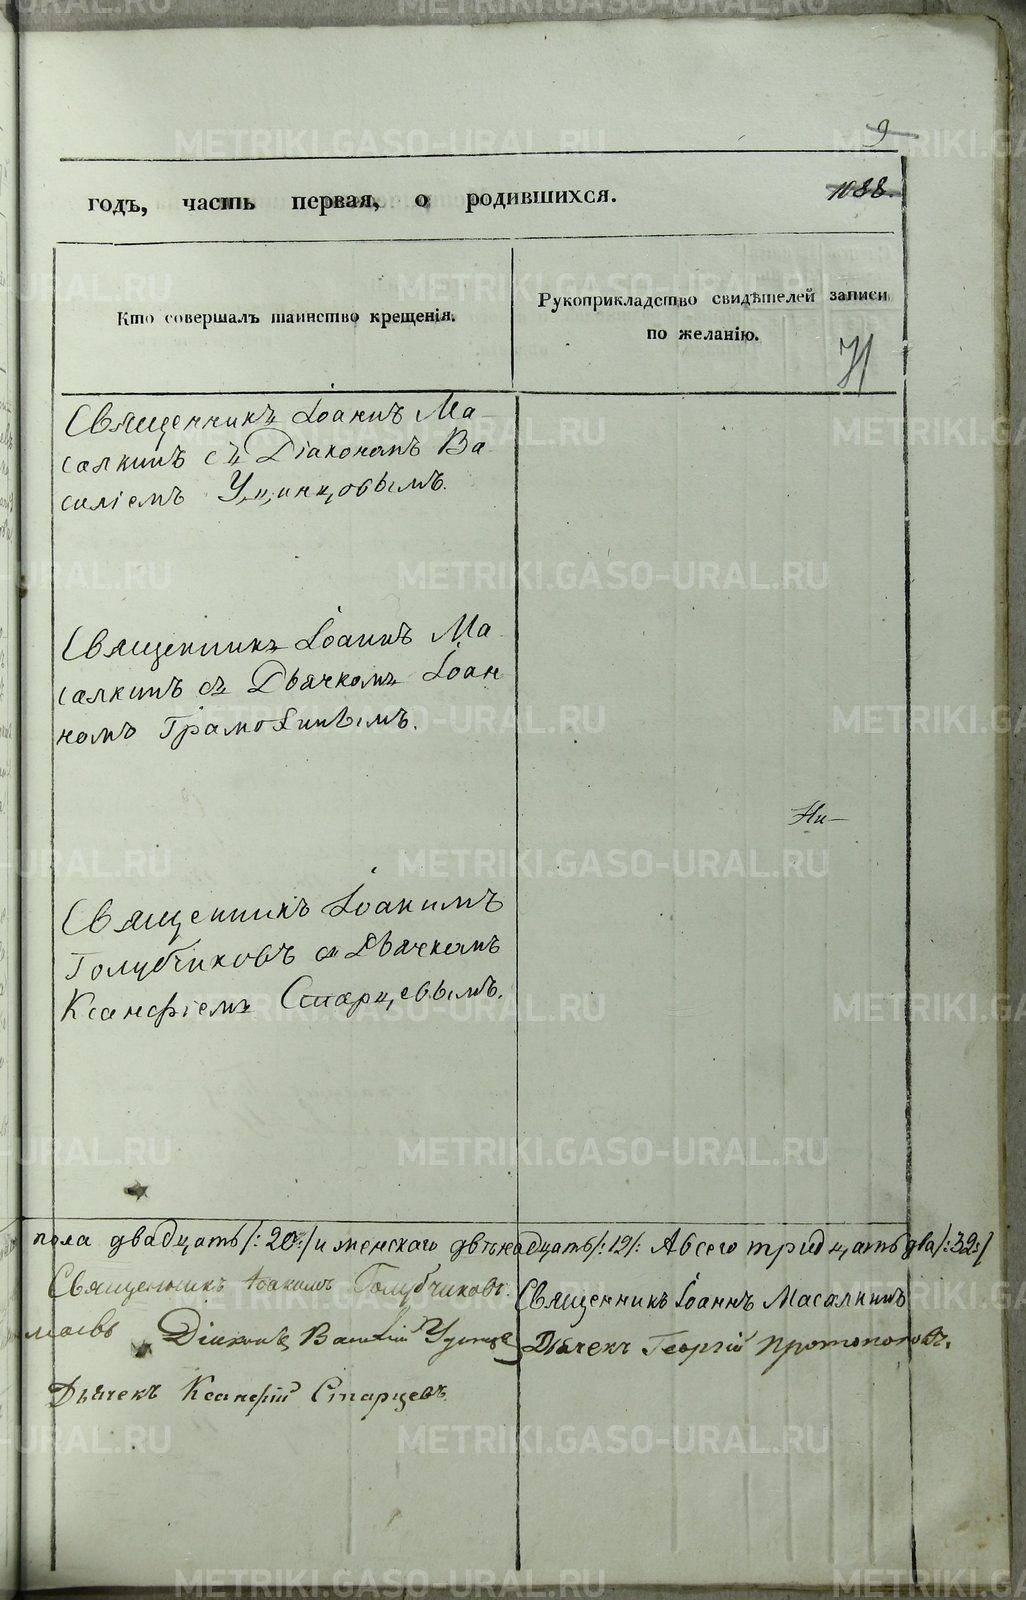 9
годъ, часть первая, о родившихся.
1088.
Кто совершалъ таинство крещенія.
Рукоприкладство свидѣтелей записи
по желанію.
71
Священникъ Іоаннъ Ма-
салкинъ съ Діакономъ Ва-
силіемъ Удинцовымъ.
Священникъ Іоаннъ Ма
салкинъ съ Дьячкомъ Іоан
номъ
Ни-
Священникъ Іоакимъ
Голубчиковъ съ Дьячкомъ
Ксанфіемъ Старцевымъ.
пола двадцать /:20:/ и женскаго двѣнадцать /:12/: А всего тридцать два /:32:/
Священникъ Іоакимъ Голубчиковъ. Священникъ Іоаннъ Масалкинъ
Діаконъ Василій Дьячекъ Георгій Протопоповъ.
Дьячекъ Ксанфій Старцевъ
METRIKI.GASO-URAL.RU